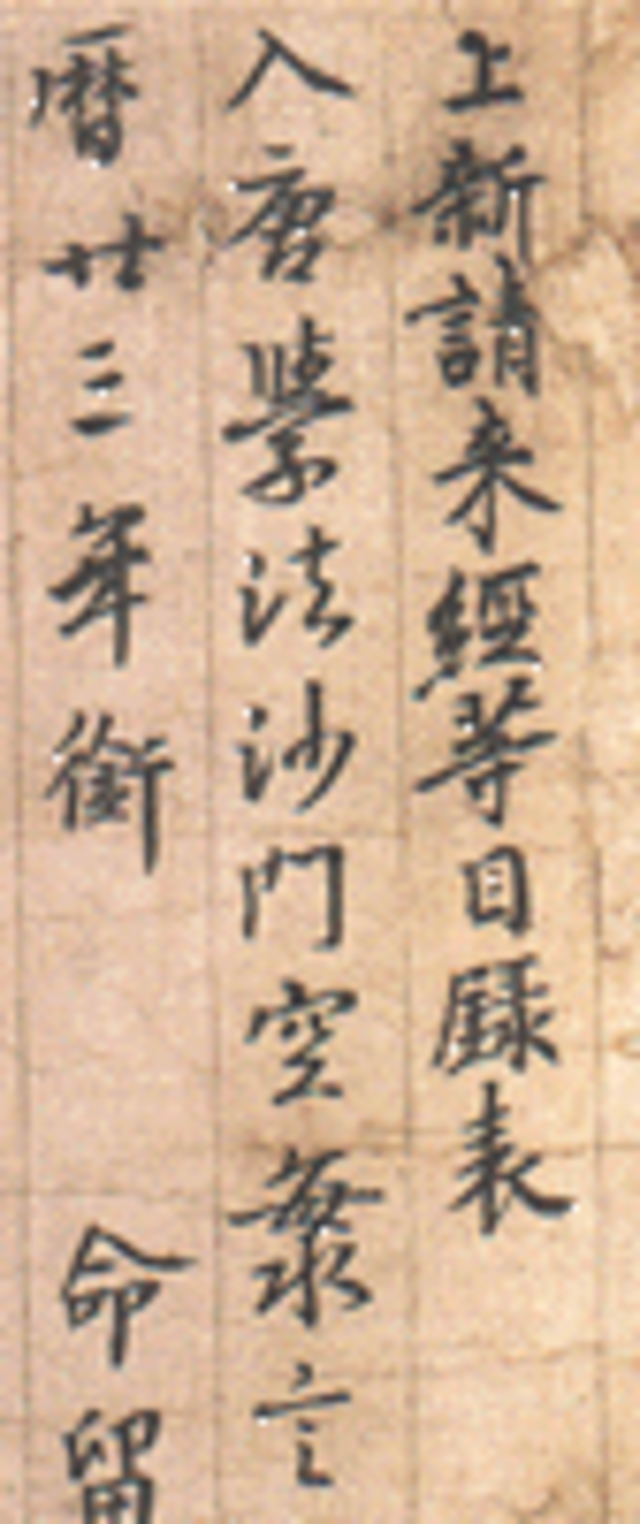 上新請来經等目錄表
入唐學法沙門空海言
曆廿三年銜命留